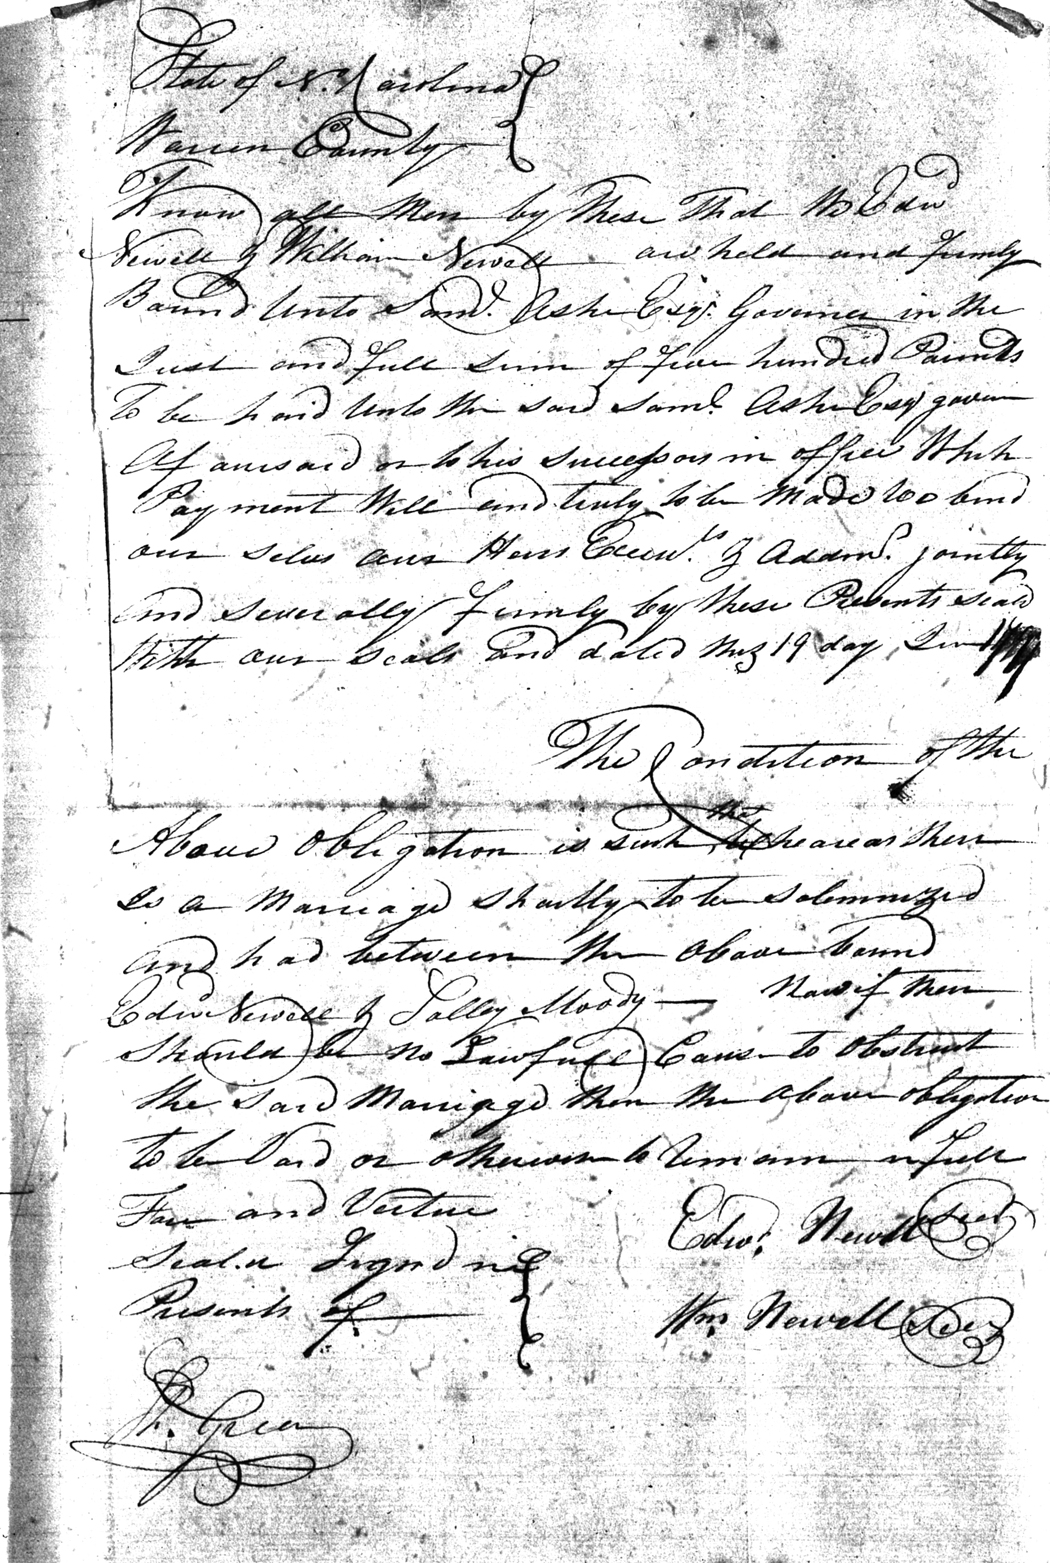 State of N. Carolina
Warren County
Know all Men by These That We Edwd
Newell & William Newell are held and firmly
Bound Unto Saml. Ashe Esqr. Governer in the
Just and full sum of five hundred Pounds
To be paid Unto the said Saml. Ashe Esqr govern
Afouresaid or to his successors in office Which
Payment Well and truly to be Made Wee bind
our selves our Heirs Exeurs. & Addms. jointly
and severally firmly by these Presents seald
With our seals and dated this 19 day Jun
The Condition of the
Above Obligation is such the wheareas there
Is a Marriage shortly to be solemnized
and had between the above bound
Edwd Newell & Salley Moody — Now if there
Should be no Lawfull Cause to obstruct
the said Marriage then the above obligation
to be Void or otherwise to Remain in full
Force and Vertue
Seal.d Signd in
Presents of
Edwd. Newell Seal
Wm. Newell
Green